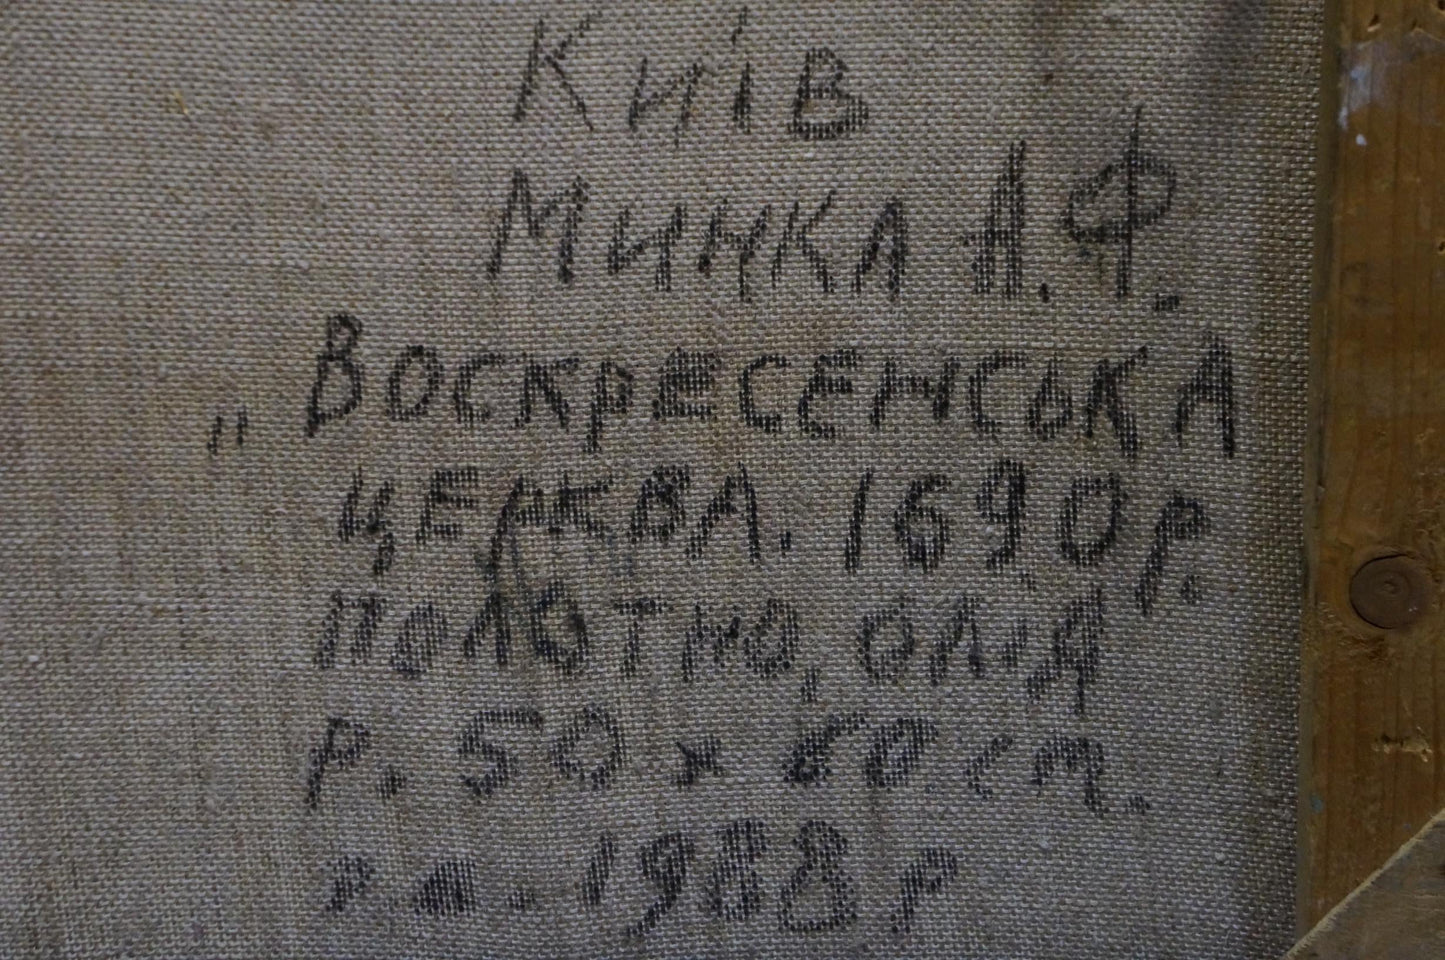 Київ
Минка А.Ф.
„Воскресенська
церква. 1690р.
Полотно, олія
р. 50 х 60 ст.
р.п. 1988 р